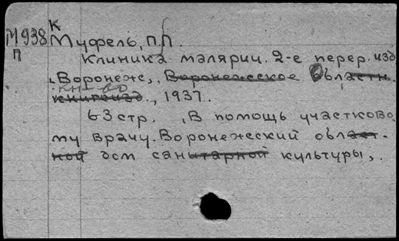 К
М938 Муфель, П.П.
П
Клиника малярии. 2-е перер. изд.
Воронеж, Воронежское Област
книгоизд., 1937.
63 стр. (В помощь участково-
му врачу. Воронежский област-
ной дом санитарной культуры).